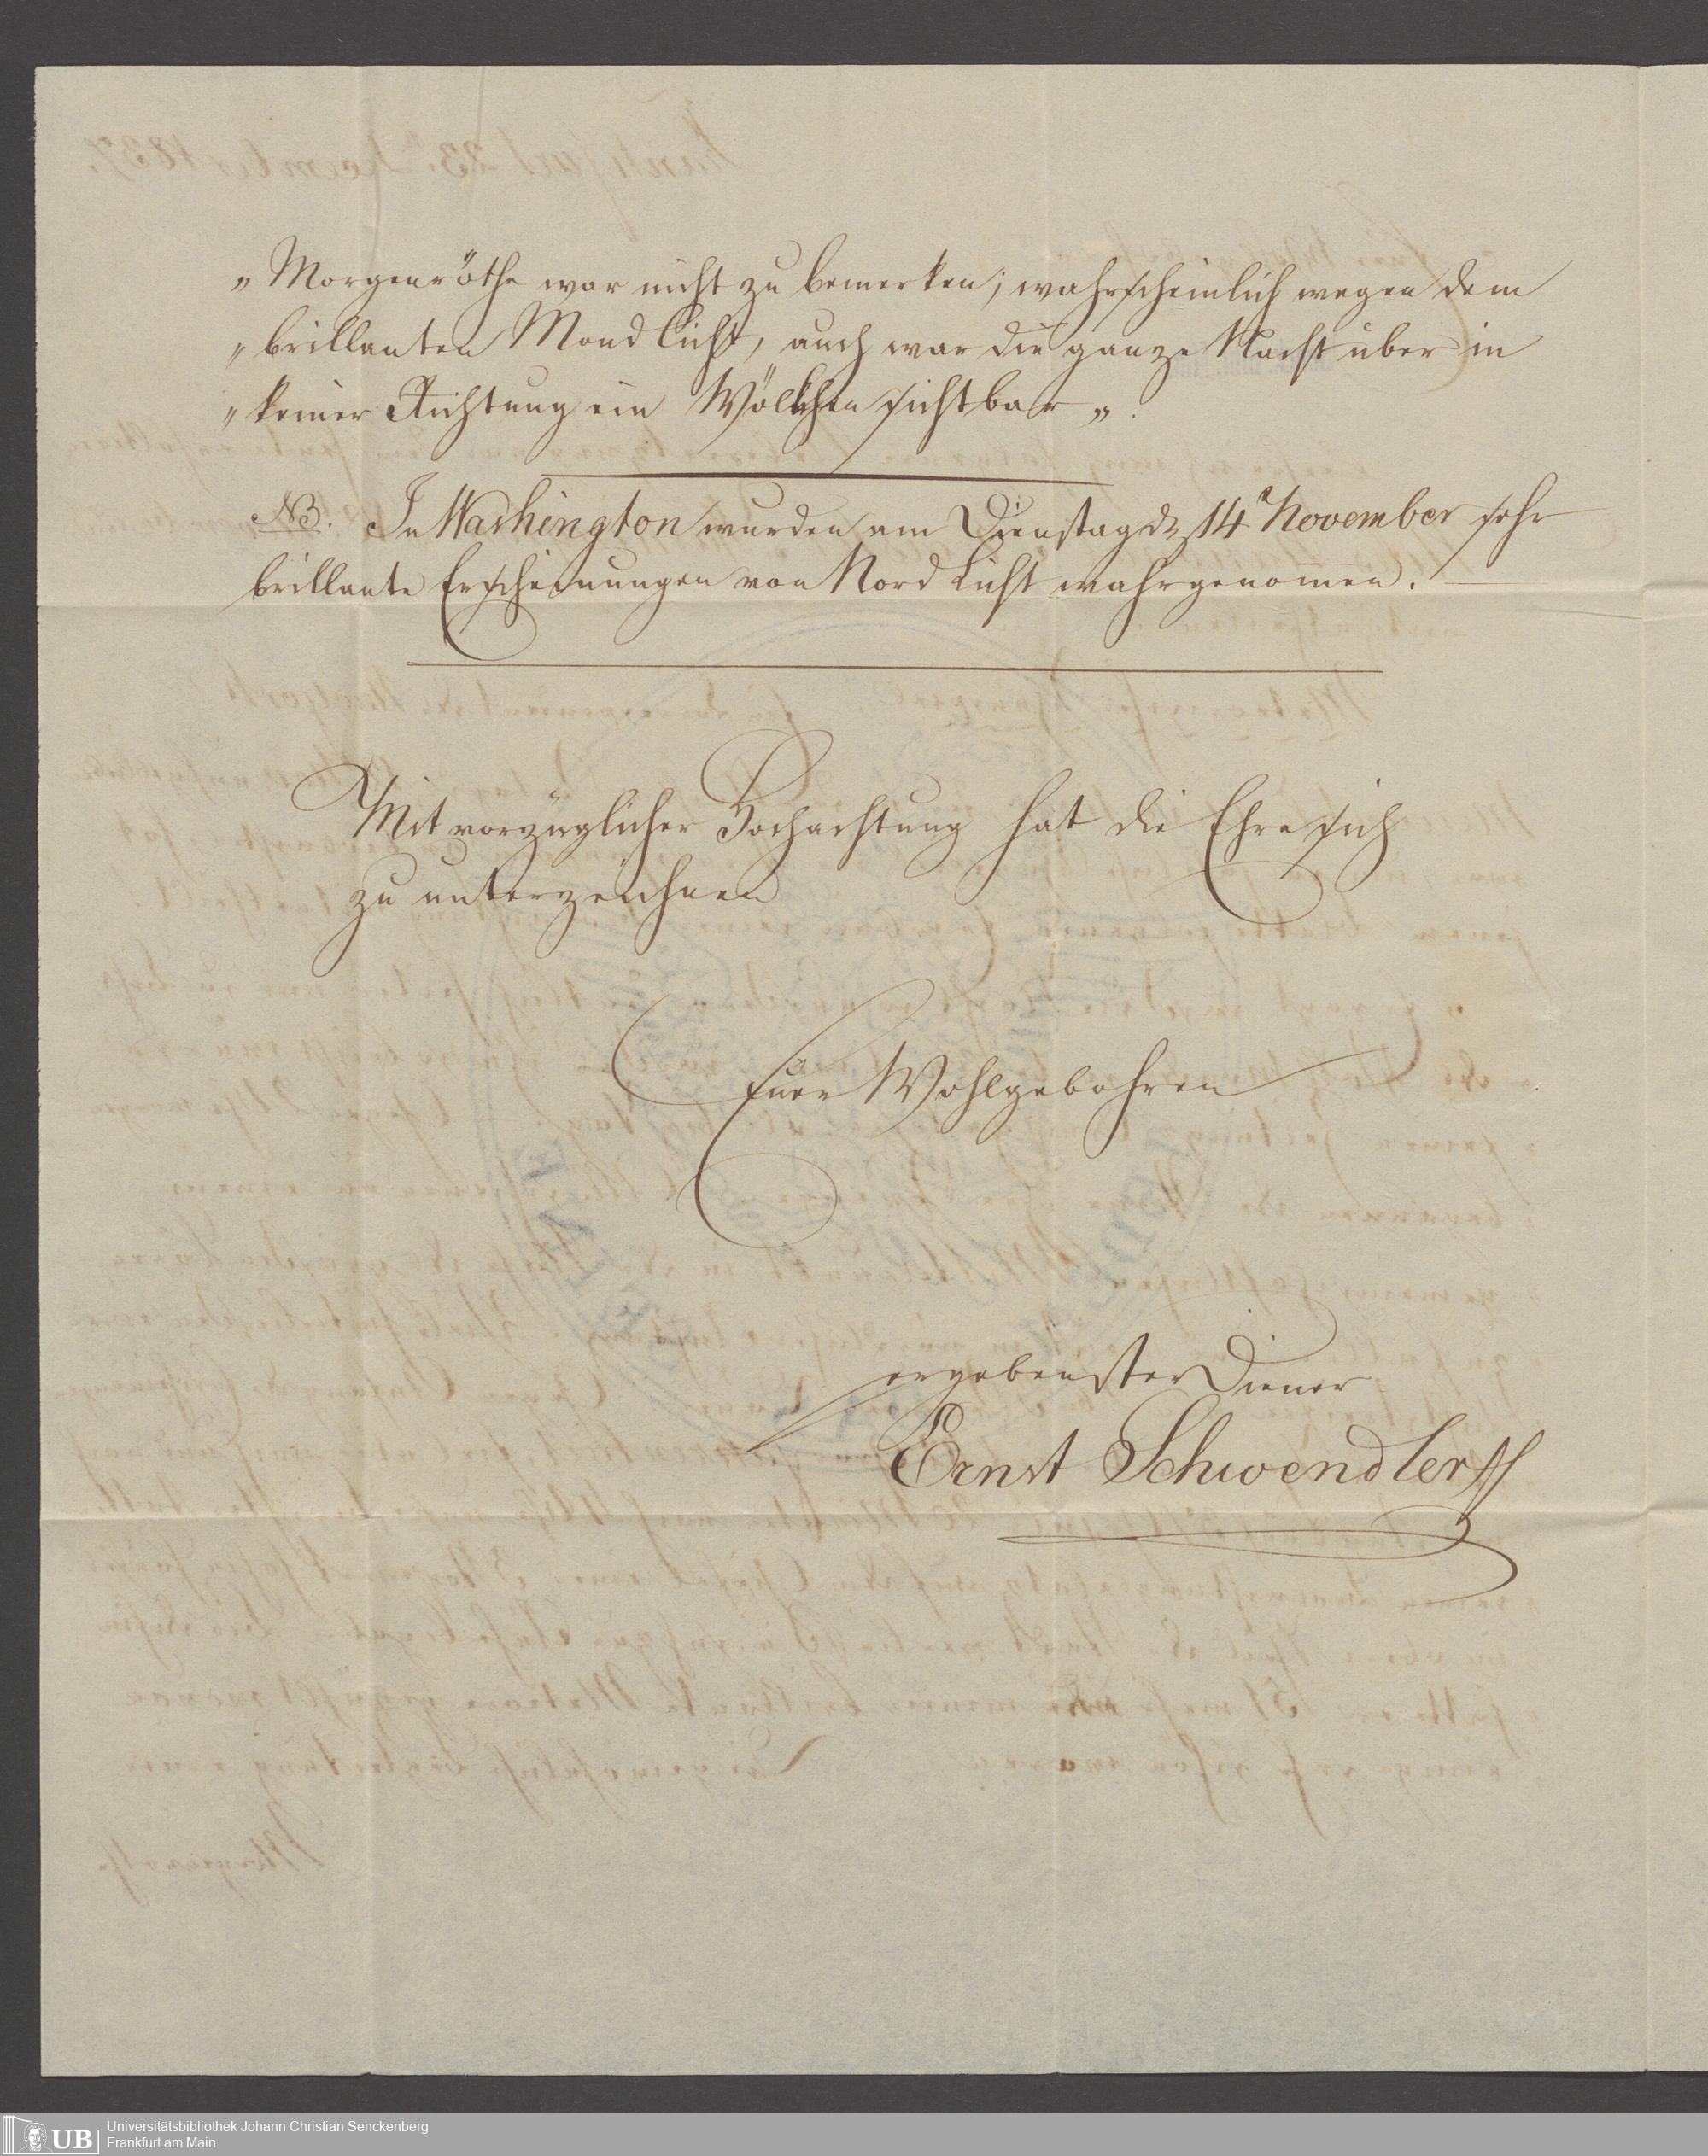 „Morgenröthe war nicht zu bemerken; wahrscheinlich wegen dem
„brillanten Mondlicht, auch war die ganze Nacht über in
„keiner Richtung ein Wölkchen sichtbar„.
NB. In Washington wurden am Dienstag d. 14n November sehr
brillante Erscheinungen von Nord Licht wahrgenom̄en.
Mit vorzüglicher Hochachtung hat die Ehre sich
zu unterzeichnen
Euer Wohlgebohren
ergebenster Diener
Ernst Schwendler
UB
Universitätsbibliothek Johann Christian Senckenberg
Frankfurt am Main